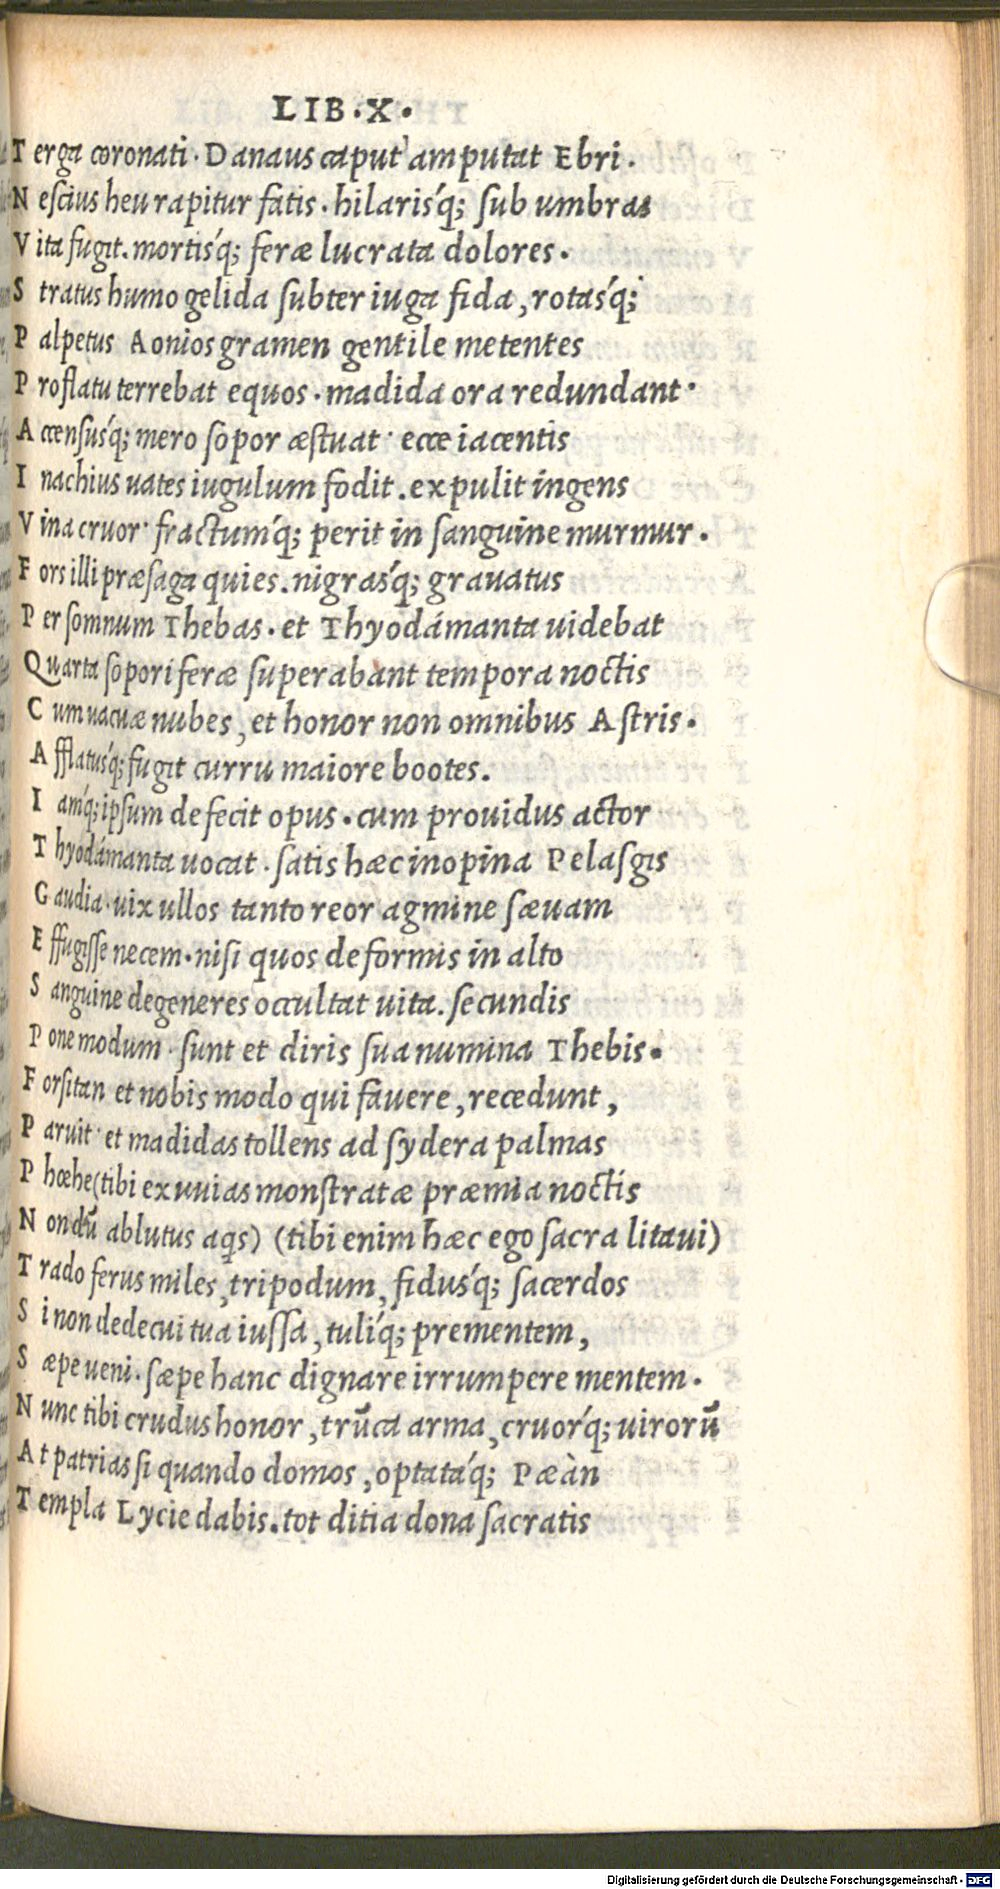 LIB.X.
T erga coronati. Danaus caput amputat Ebri.
N escius heu rapitur fatis. hilarisq́; ſub umbras
V ita fugit. mortisq́; feræ lucrata dolores.
S tratus humo gelida ſubter iuga fida, rotasq́;
P alpetus Aonios gramen gentile metentes
P roflatu terrebat equos. madida ora redundant.
A ccenſusq́; mero ſopor æſtuat. ecce iacentis
I nachius uates iugulum fodit. expulit ingens
V ina cruor. fractumq́; perit in ſanguine murmur.
F ors illi præſaga quies. nigrasq́; grauatus
P er ſomnum Thebas. et Thyodámanta uidebat
Q uarta ſoporiferæ ſuperabant tempora noctis
C um uacuæ nubes, et honor non omnibus Aſtris.
A fflatusq́; fugit curru maiore bootes.
I amq́; ipſum defecit opus. cum prouidus actor
T hyodámanta uocat. ſatis hæc inopina Pelaſgis
G audia. uix ullos tanto reor agmine ſæuam
E ffugiſſe necem. niſi quos deformis in alto
S anguine degeneres occultat uita. ſecundis
P one modum. ſunt et diris ſua numina Thebis.
F orſitan et nobis modo qui fauere, recedunt,
P aruit. et madidas tollens ad ſydera palmas
P hœbe (tibi exuuias monſtratæ præmia noctis
N ondū ablutus aq̃s) (tibi enim hæc ego ſacra litaui)
T rado ferus miles, tripodum, fidusq́; ſacerdos
S i non dedecui tua iuſſa, tuliq́; prementem,
S æpe ueni. ſæpe hanc dignare irrumpere mentem.
N unc tibi crudus honor, trūca arma, cruorq́; uirorū
A t patrias ſi quando domos, optatáq́; Pæàn
T empla Lycie dabis. tot ditia dona ſacratis
Digitalisierung gefördert durch die Deutsche Forschungsgemeinschaft - DFG